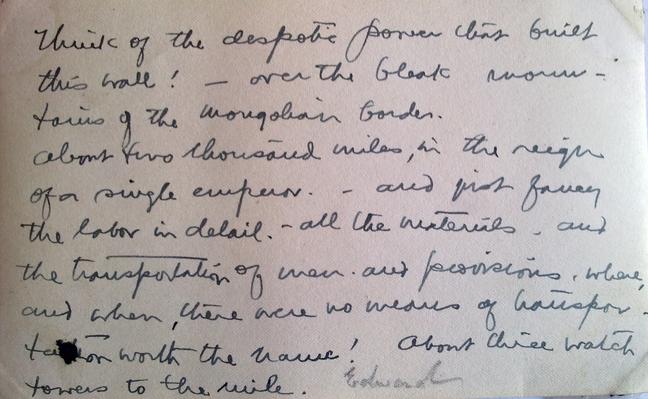 Think of the despotic power that built
this wall! — over the bleak moun-
tains of the mongolian border.
about two thousand miles, in the reign
of a single emperor. - and just fancy
the labor in detail. - all the materials, and
the transportation of men. and provisions, where,
and when, there were no means of transpor-
tation worth the name! About three watch
towers to the mile. Edward